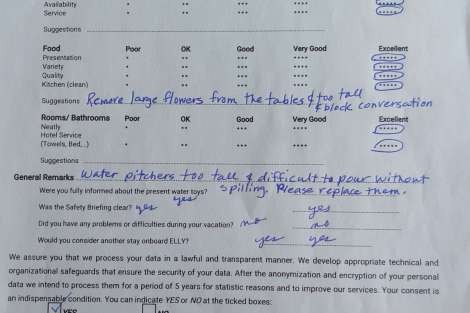 Availability • •• ••• •••• •••••
Service • •• ••• •••• •••••
Suggestions
Food Poor OK Good Very Good Excellent
Presentation • •• ••• •••• •••••
Variety • •• ••• •••• •••••
Quality • •• ••• •••• •••••
Kitchen (clean) • •• ••• •••• •••••
Suggestions Remove large flowers from the tables & too tall
& block conversation
Rooms/ Bathrooms Poor OK Good Very Good Excellent
Neatly • •• ••• •••• •••••
Hotel Service
(Towels, Bed,..) • •• ••• •••• •••••
Suggestions
General Remarks Water pitchers too tall & difficult to pour without
Were you fully informed about the present water toys? yes spilling. Please replace them.
Was the Safety Briefing clear? yes yes
Did you have any problems or difficulties during your vacation? no no
Would you consider another stay onboard ELLY? yes yes
We assure you that we process your data in a lawful and transparent manner. We develop appropriate technical and
organizational safeguards that ensure the security of your data. After the anonymization and encryption of your personal
data we intend to process them for a period of 5 years for statistic reasons and to improve our services. Your consent is
an indispensable condition. You can indicate YES or NO at the ticked boxes:
YES NO